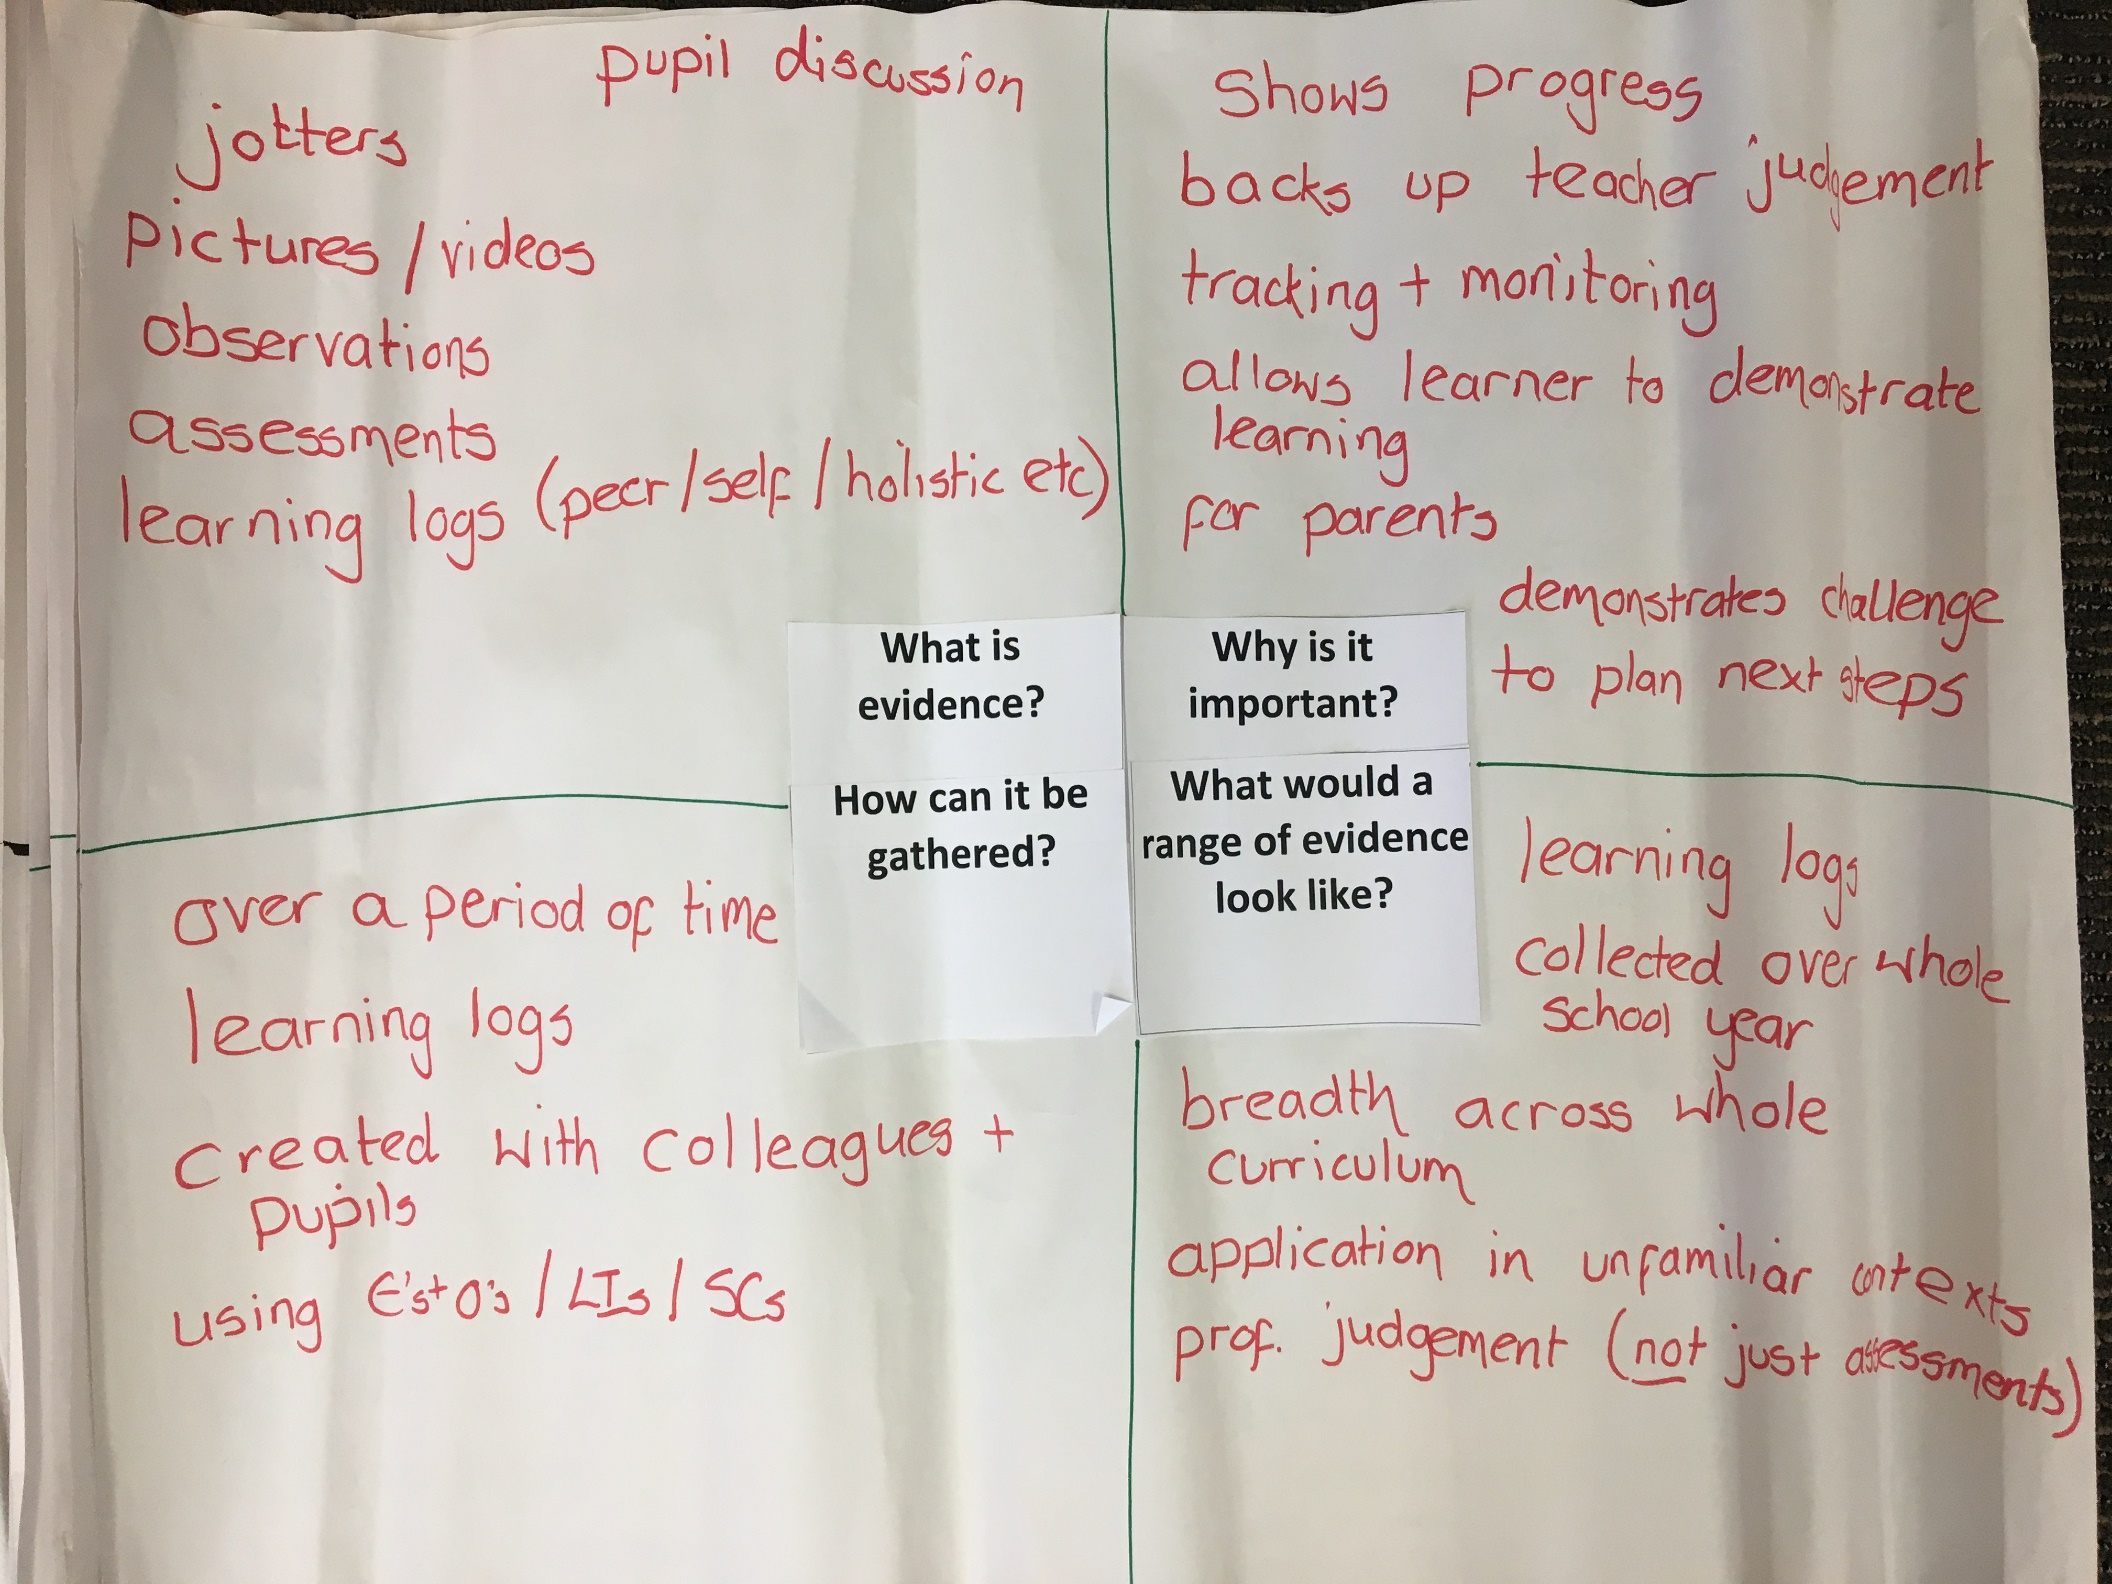 pupil discussion
jotters
pictures / videos
observations
assessments
(peer / self / holistic etc)
learning logs
What is
evidence?
Shows progress
backs up teacher judgement
tracking + monitoring
allows learner to demonstrate
learning
for parents
demonstrates challenge
to plan next steps
Why is it
important?
How can it be
gathered?
over a period of time
learning logs
created with colleagues +
pupils
using E's + O's / LIs / SCs
What would a
range of evidence
look like?
learning logs
collected over whole
school year
breadth across whole
curriculum
application in unfamiliar contexts
prof. judgement (not just assessments)